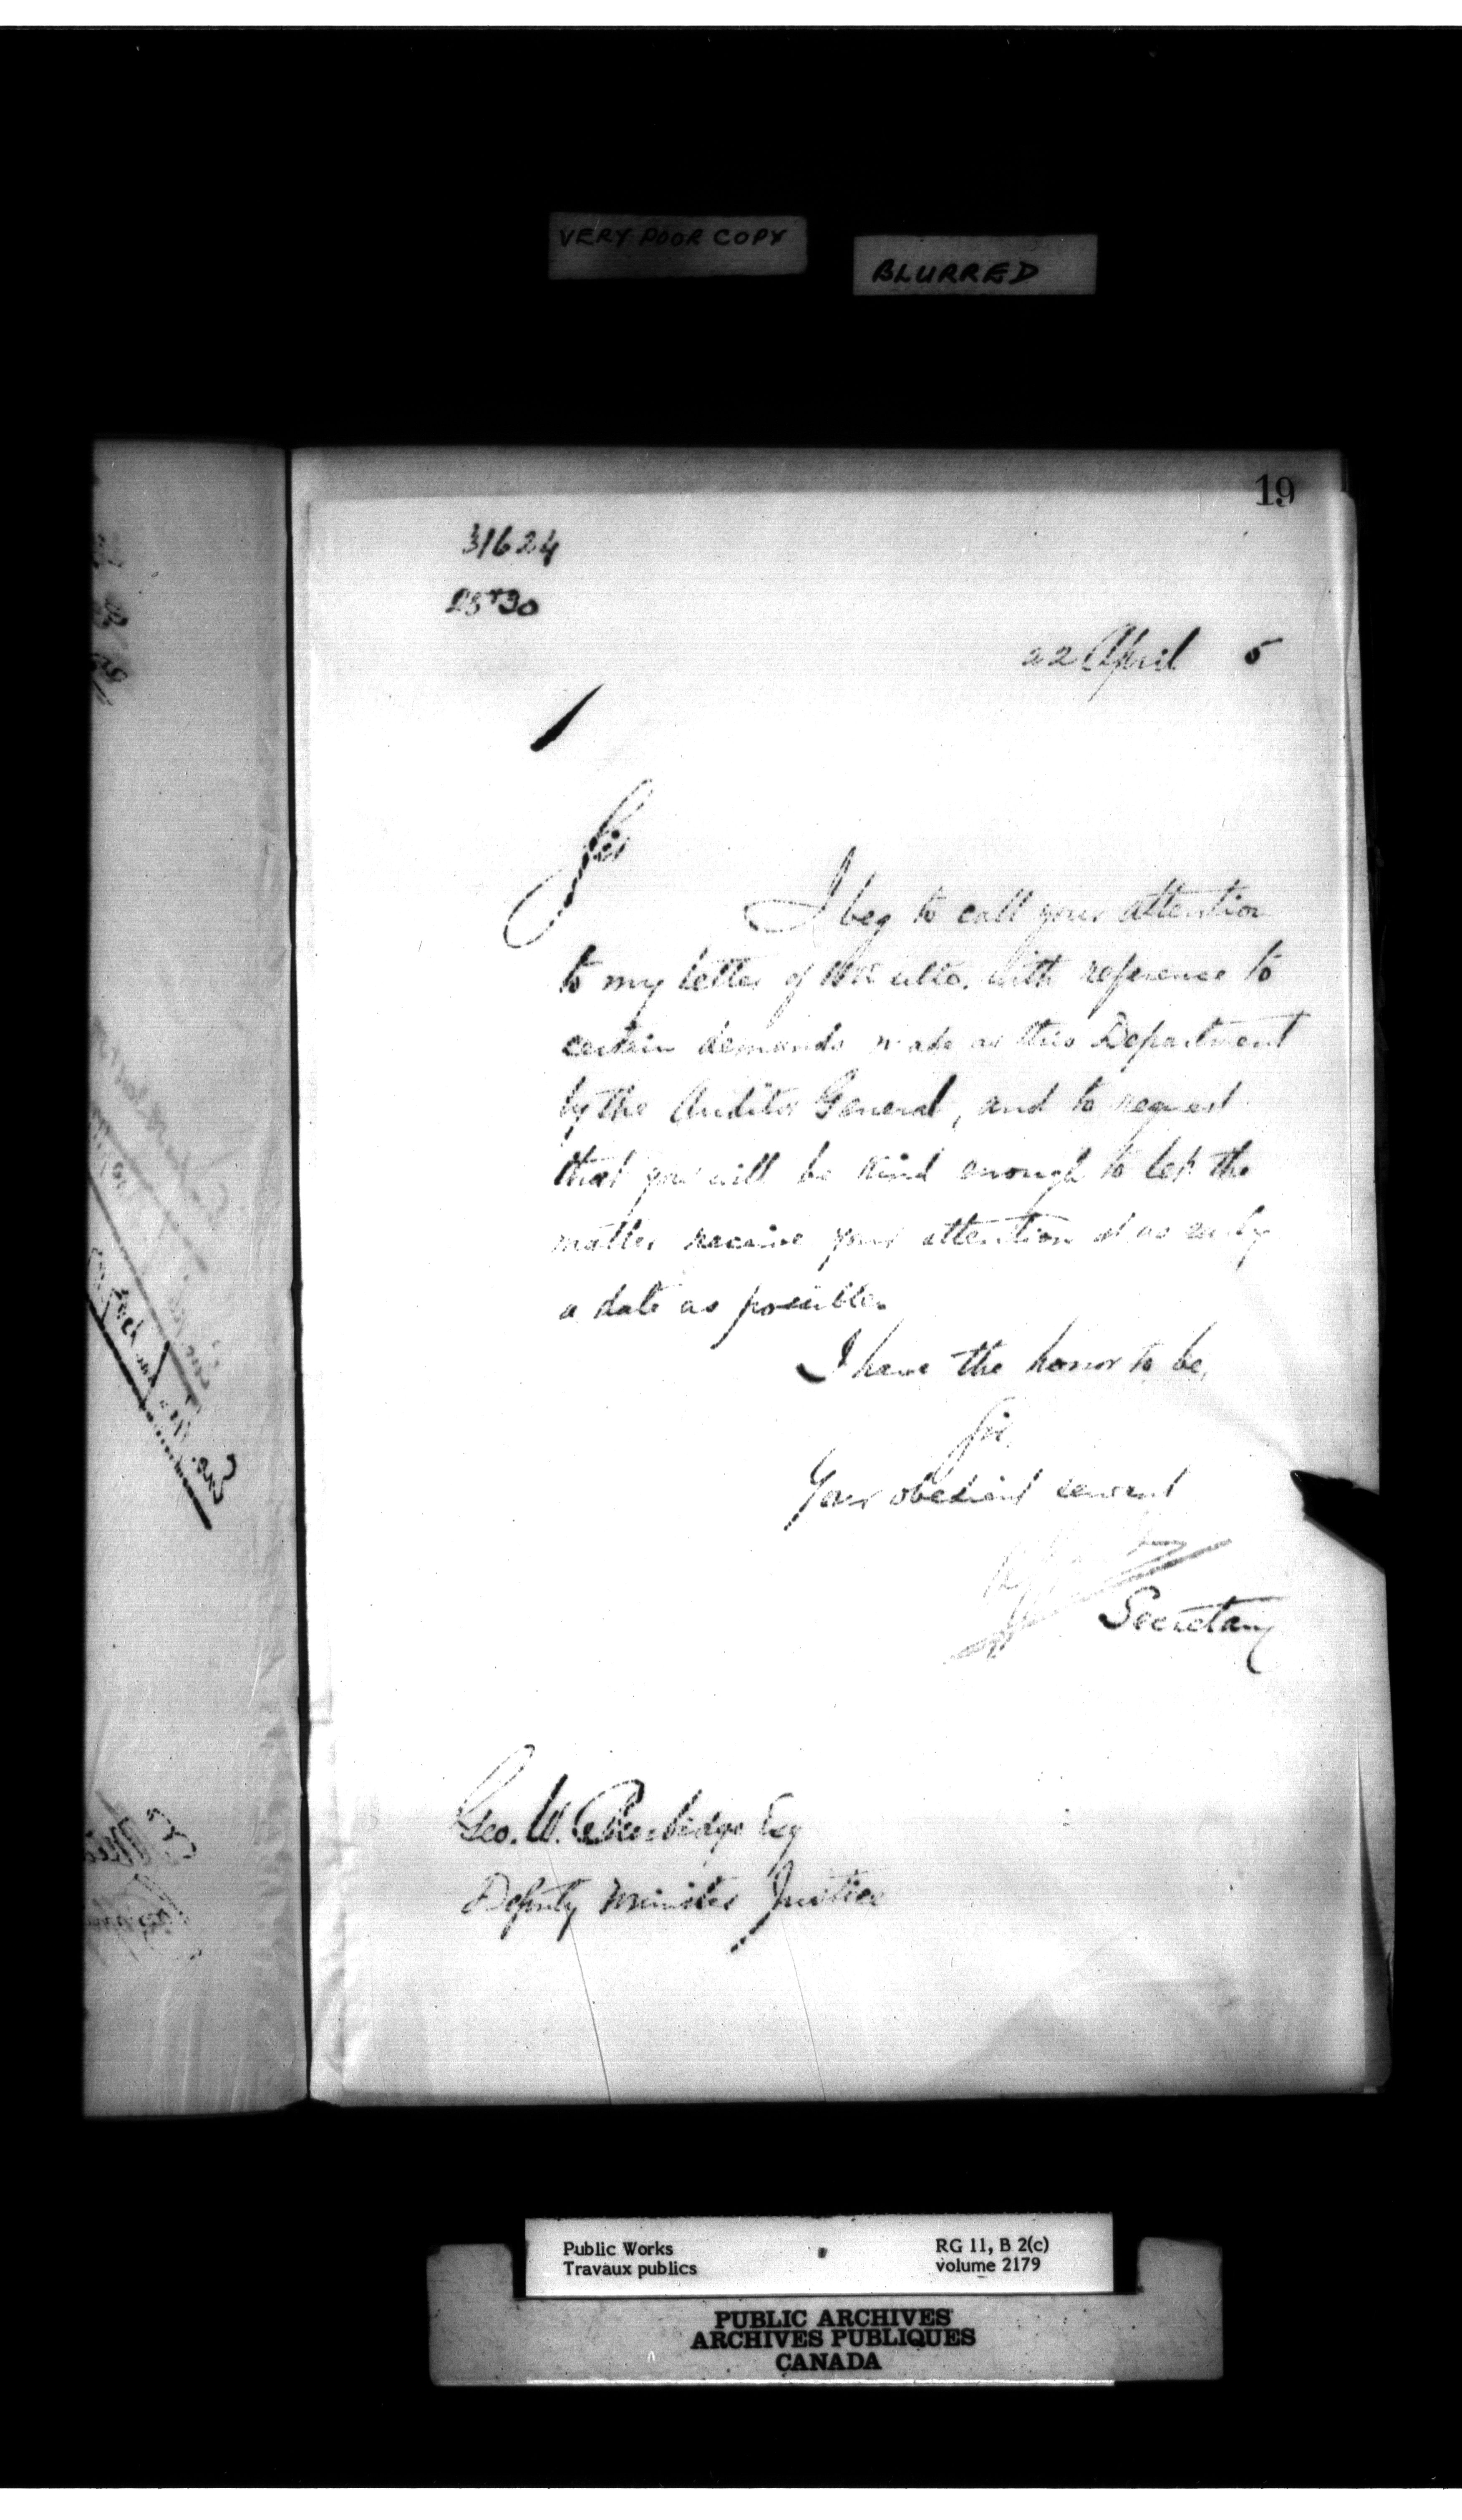 VERY POOR COPY
BLURRED
19
31624
22 April 5
Sir
I beg to call your attention
to my letter of ulto. with reference to
certain demands made on this Department
by the Auditor General, and to request
that you will be kind enough to let the
matter receive your attention at as early
a date as possible.
I have the honor to be,
Sir
Your obedient servant
Secretary
Geo. W. Burbidge Esq
Deputy Minister Justice
Public Works
Travaux publics
RG 11, B 2(c)
volume 2179
PUBLIC ARCHIVES
ARCHIVES PUBLIQUES
CANADA